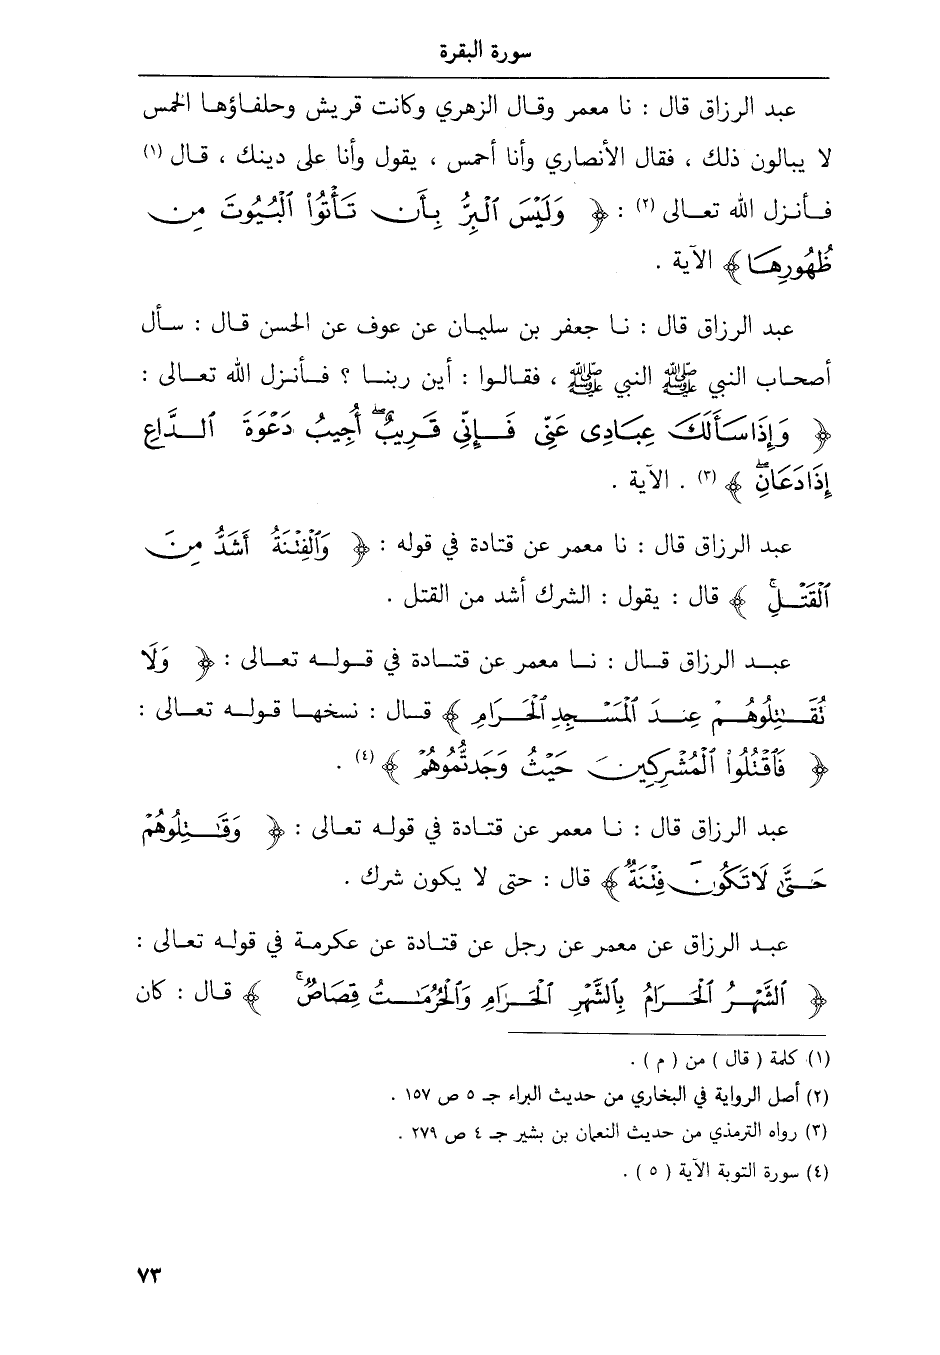 سورة البقرة
عبد الرزاق قال : نا معمر وقال الزهري وكانت قريش وحلفاؤها الخمس
لا يبالون ذلك ، فقال الأنصاري وأنا أحمس ، يقول وأنا على دينك ، قال (١)
فأنزل الله تعالى (٢) : ﴿ وَلَيْسَ ٱلْبِرُّ بِأَن تَأْتُوا۟ ٱلْبُيُوتَ مِن
ظُهُورِهَا ﴾ الآية .
عبد الرزاق قال : نا جعفر بن سليمان عن عوف عن الحسن قال : سأل
أصحاب النبي ﷺ النبي ﷺ ، فقالوا : أين ربنا ؟ فأنزل الله تعالى :
﴿ وَإِذَا سَأَلَكَ عِبَادِى عَنِّى فَإِنِّى قَرِيبٌ ۖ أُجِيبُ دَعْوَةَ ٱلدَّاعِ
إِذَا دَعَانِ ۖ ﴾ (٣) . الآية .
عبد الرزاق قال : نا معمر عن قتادة في قوله : ﴿ وَٱلْفِتْنَةُ أَشَدُّ مِنَ
ٱلْقَتْلِ ۚ ﴾ قال : يقول : الشرك أشد من القتل .
عبد الرزاق قال : نا معمر عن قتادة في قوله تعالى : ﴿ وَلَا
تُقَٰتِلُوهُمْ عِندَ ٱلْمَسْجِدِ ٱلْحَرَامِ ﴾ قال : نسخها قوله تعالى :
﴿ فَٱقْتُلُوا۟ ٱلْمُشْرِكِينَ حَيْثُ وَجَدتُّمُوهُمْ ﴾ (٤) .
عبد الرزاق قال : نا معمر عن قتادة في قوله تعالى : ﴿ وَقَٰتِلُوهُمْ
حَتَّىٰ لَا تَكُونَ فِتْنَةٌ ﴾ قال : حتى لا يكون شرك .
عبد الرزاق عن معمر عن رجل عن قتادة عن عكرمة في قوله تعالى :
﴿ ٱلشَّهْرُ ٱلْحَرَامُ بِٱلشَّهْرِ ٱلْحَرَامِ وَٱلْحُرُمَٰتُ قِصَاصٌ ۚ ﴾ قال : كان
(١) كلمة ( قال ) من ( م ) .
(٢) أصل الرواية في البخاري من حديث البراء جـ ٥ ص ١٥٧ .
(٣) رواه الترمذي من حديث النعمان بن بشير جـ ٤ ص ٢٧٩ .
(٤) سورة التوبة الآية ( ٥ ) .
٧٣